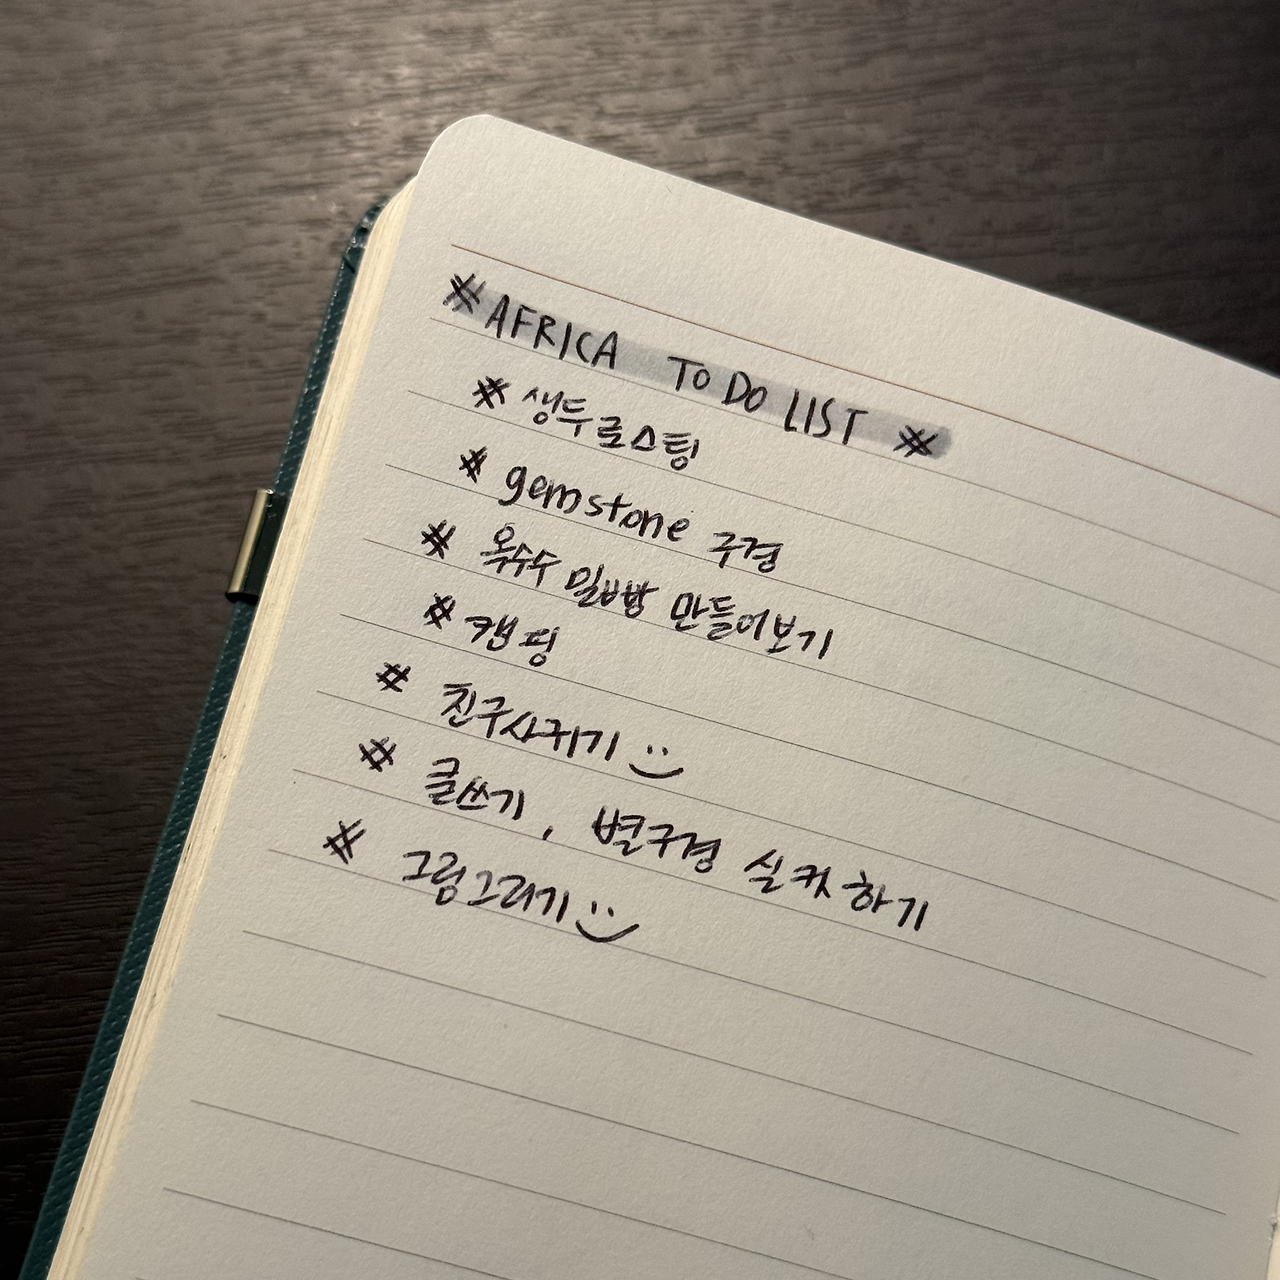 ※AFRICA TO DO LIST ※
※ 생두로스팅
※ gemstone 구경
※ 옥수수 밀빵 만들어보기
※ 캠핑
※ 친구사귀기 :)
※ 글쓰기, 별구경 실컷하기
※ 그림그리기 :)